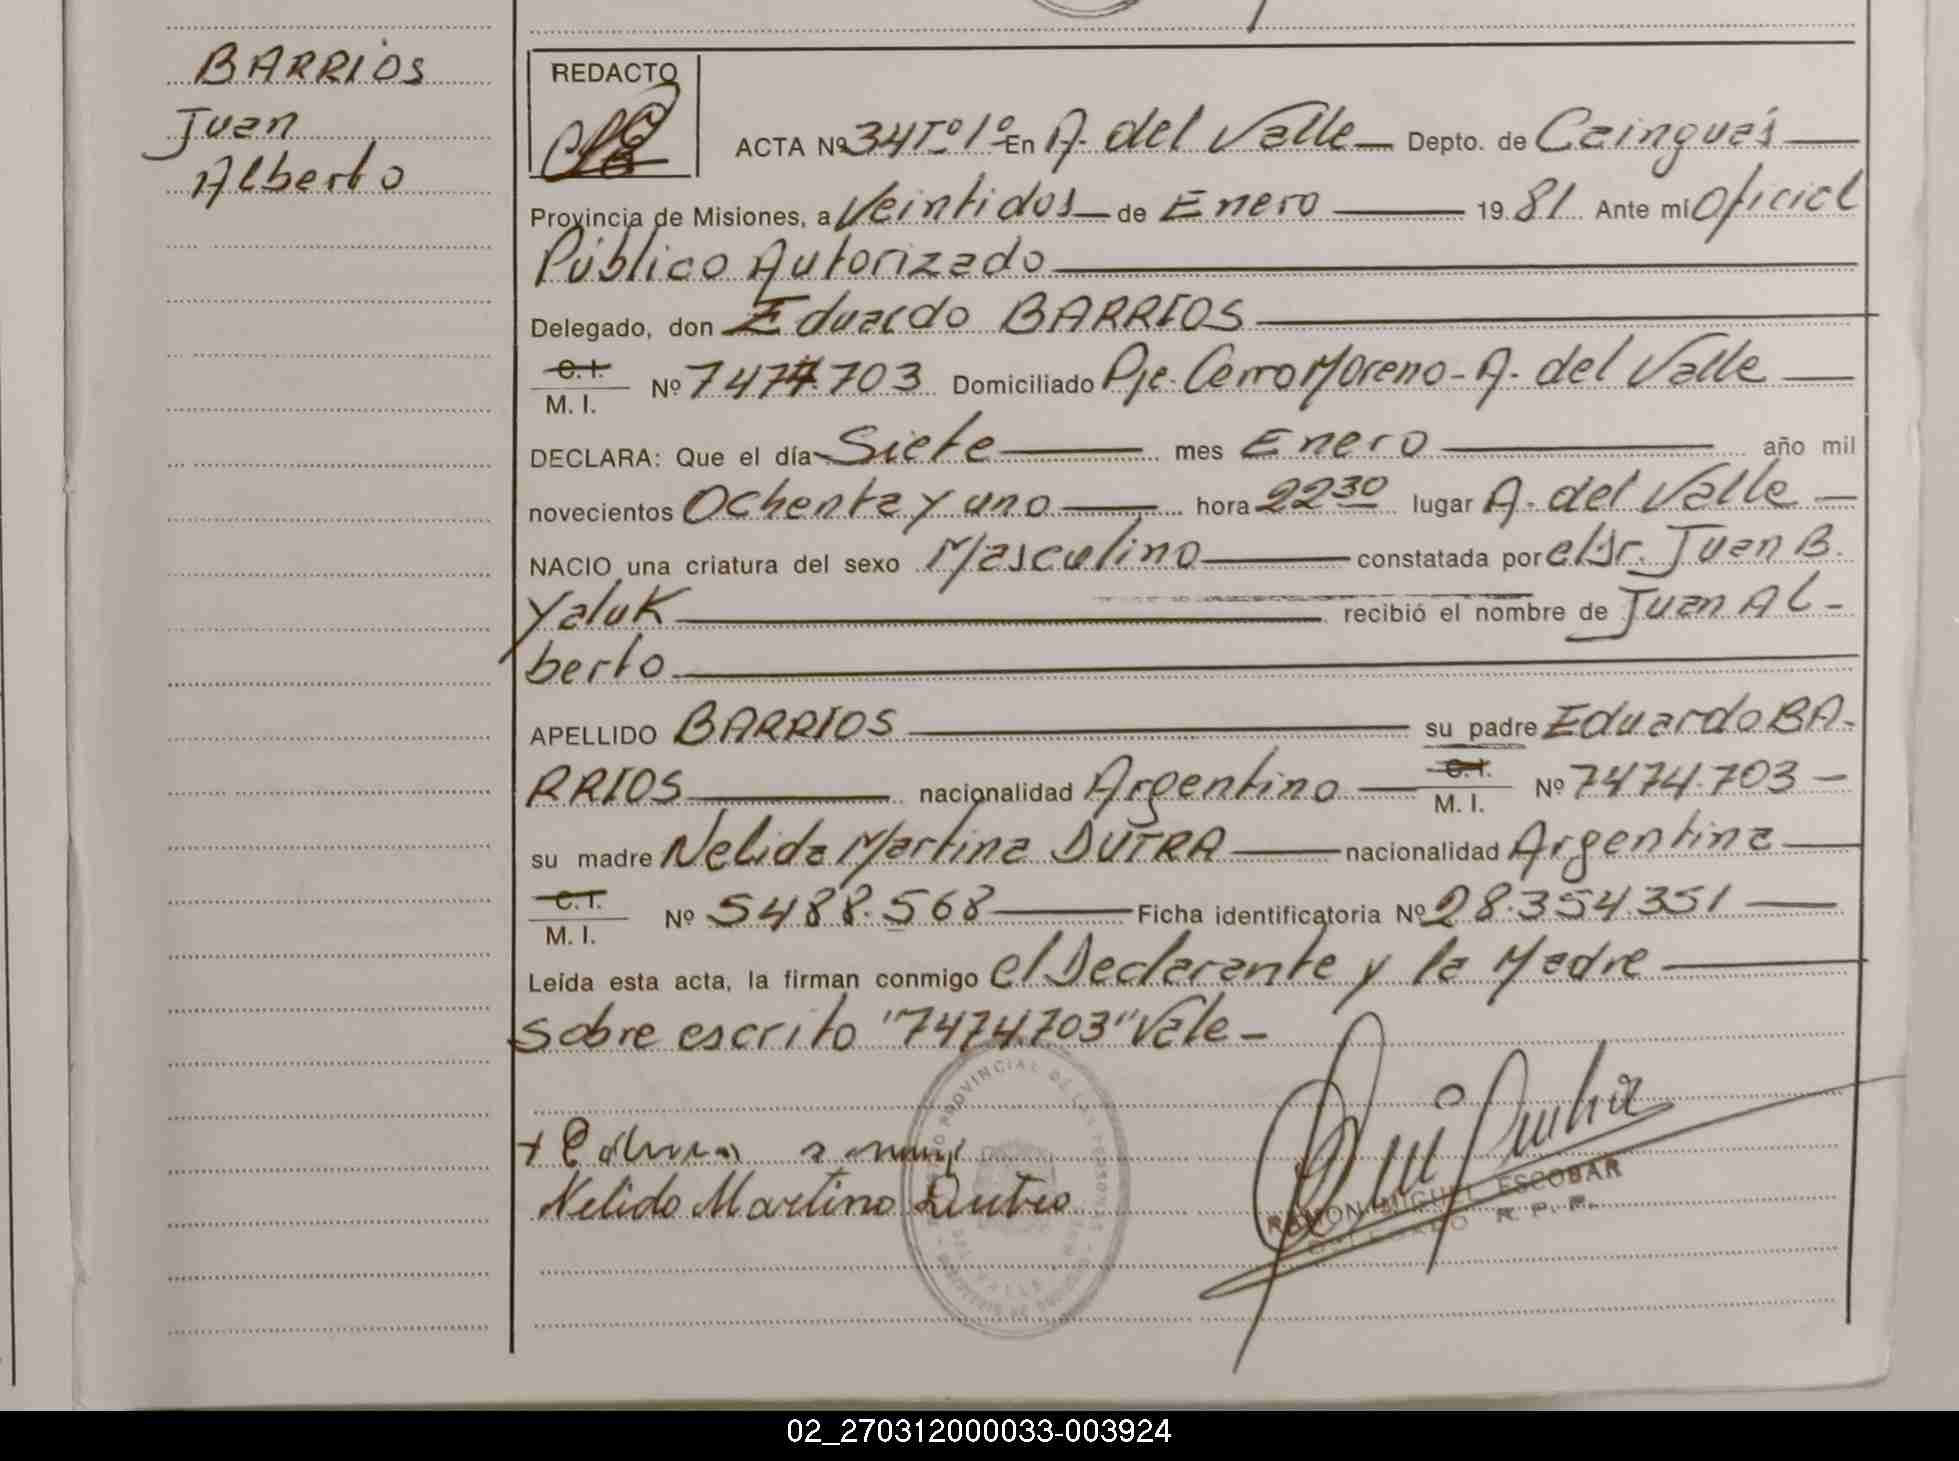 BARRIOS
Juan
Alberto
REDACTO
ACTA Nº 34 Tº 1º En A. del Valle — Depto. de Cainguás
Provincia de Misiones, a Veintidos de Enero 19 81 Ante mí Oficial
Público Autorizado
Delegado, don Eduardo BARRIOS
C. I.
M. I. Nº 7474.703 Domiciliado Pje. Cerro Moreno - A. del Valle
DECLARA: Que el día Siete mes Enero año mil
novecientos Ochenta y uno hora 22 30 lugar A. del Valle
NACIO una criatura del sexo Masculino constatada por el Sr. Juan B.
Yaluk recibió el nombre de Juan Al-
berto
APELLIDO BARRIOS su padre Eduardo BA-
RRIOS nacionalidad Argentino C. I. M. I. Nº 7474.703 -
su madre Nelida Martina DUTRA nacionalidad Argentina
C. I.
M. I. Nº 5488.568 Ficha identificatoria Nº 28.354.351
Leída esta acta, la firman conmigo el Declarante y la Madre
Sobre escrito "7474.703" Vale -
Nelida Martina Dutra
RAMON MIGUEL ESCOBAR
DELEGADO R. P. P.
02_270312000033-003924